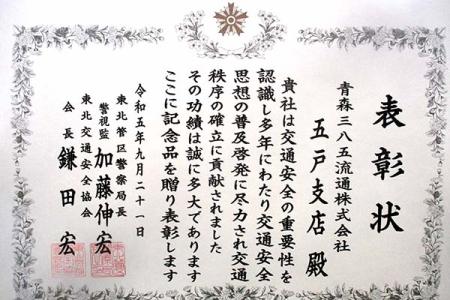 表彰状
青森三八五流通株式会社
五戸支店殿
貴社は交通安全の重要性を
認識し多年にわたり交通安全
思想の普及啓発に尽力され交通
秩序の確立に貢献されました
その功績は誠に多大であります
ここに記念品を贈り表彰します
令和五年九月二十一日
東北管区警察局長
警視監 加藤伸宏
東北交通安全協会
会長 鎌田宏